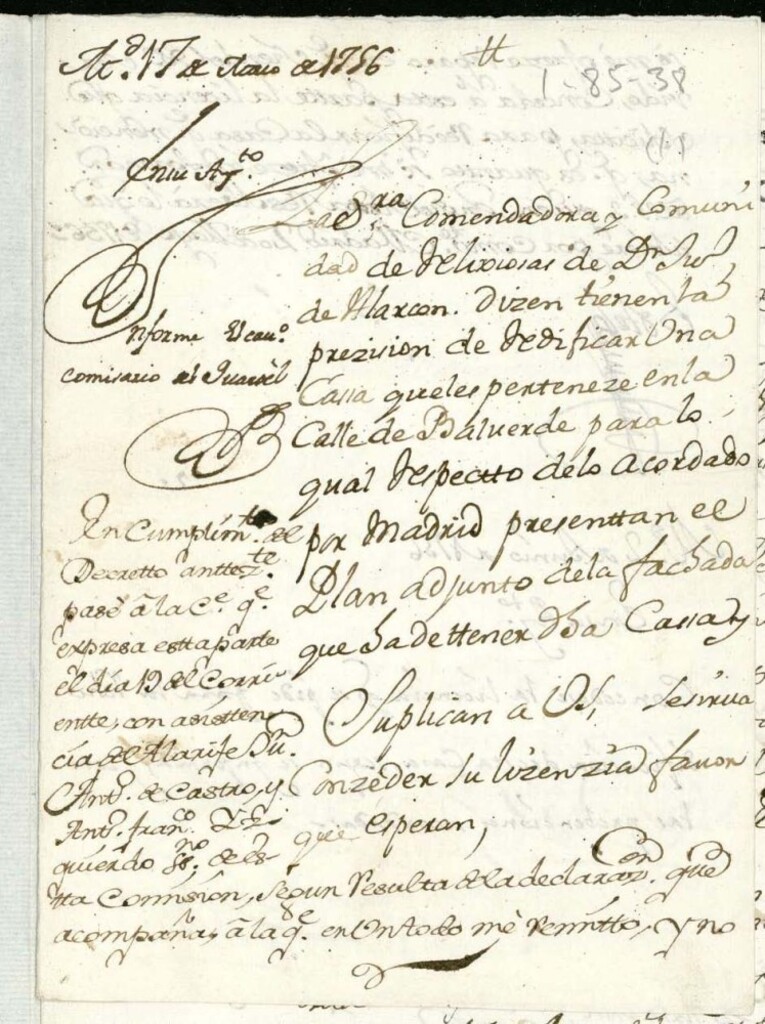 M.d 17 de Marzo de 1756
tt
1-85-38
En su Ay.to
La S.ra Comendadora y Comuni
dad de Relixiosas de D.n Juº
de Alarcon. Dizen tienen la
prezision de Redificar Una
Cassa que les perteneze en la
Calle de Balverde para lo
qual Respectto delo acordado
por Madrid presenttan el
Plan adjunto dela fachada
que ha de ttener dha Cassa y
Suplican a VS, se sirva
Conzeder su lizenzia favor
que esperan,
Informe el cavº.
comisario del Quartel
En Cumplim.to del
Decretto anttez.te
pasè à la C.e q.e
expresa estta parte
el dia 19 del Corri
entte, con asistten
cia del Alarife Dn.
Antº. de Castro, y
Antº. Franco. Yz
quierdo ss.no de es
tta Comision, segun Resulta de la declaraz.on que
acompaña, à la q.e en Un todo me Remitto, y no